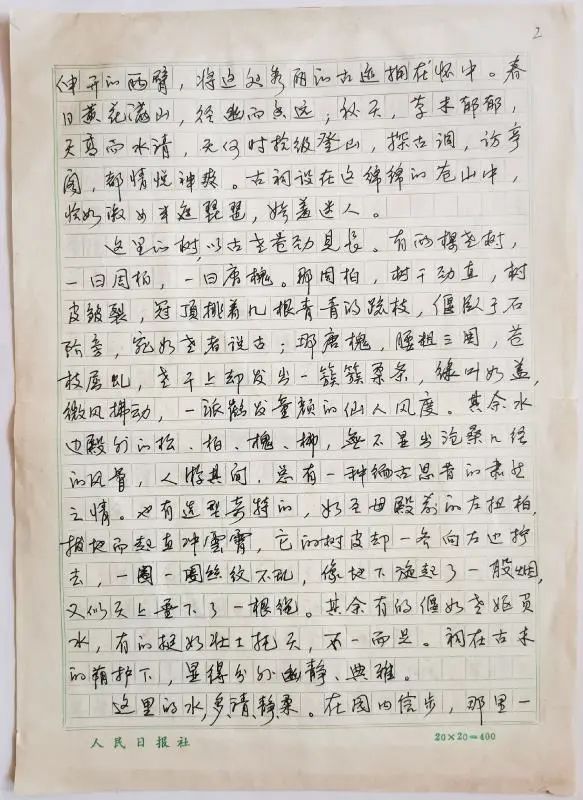 2
伸开的两臂，将这处秀丽的古迹拥在怀中。春
日黄花满山，径幽而香远；秋天，草木郁郁，
天高而水清，无论何时拾级登山，探古洞，访亭
阁，都情悦神爽。古祠设在这绵绵的苍山中，
恰如淑女半遮琵琶，娇羞迷人。
这里的树，以古老苍劲见长。有两棵老树，
一曰周柏，一曰唐槐。那周柏，树干劲直，树
皮皱裂，冠顶挑着几根青青的疏枝，偃卧于石
阶旁，宛如老者说古；那唐槐，腰粗三围，苍
枝屈虬，老干上却发出一簇簇柔条，绿叶如盖，
微风拂动，一派鹤发童颜的仙人风度。其余水
边殿外的松、柏、槐、柳，无不显出沧桑几经
的风骨，人游其间，总有一种缅古思昔的肃然
之情。也有造型奇特的，如圣母殿前的左扭柏，
拔地而起直冲云霄，它的树皮却一齐向左边拧
去，一圈一圈丝纹不乱，像地下旋起了一股烟，
又似天上垂下了一根绳。其余有的偃如老妪负
水，有的挺如壮士托天，不一而足。祠在古木
的荫护下，显得分外幽静、典雅。
这里的水，多、清、静、柔。在园内信步，那里一
人民日报社
20×20=400